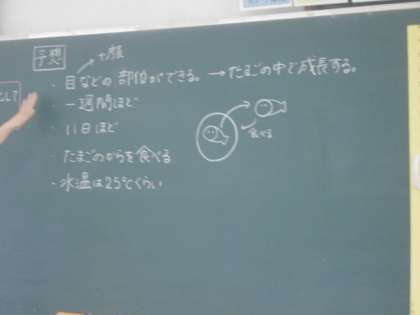 予想
→顔
・目などの部位ができる。→たまごの中で成長する。
・一週間ほど
・11日ほど
・たまごのからを食べる
・水温は25℃くらい
食べる
して